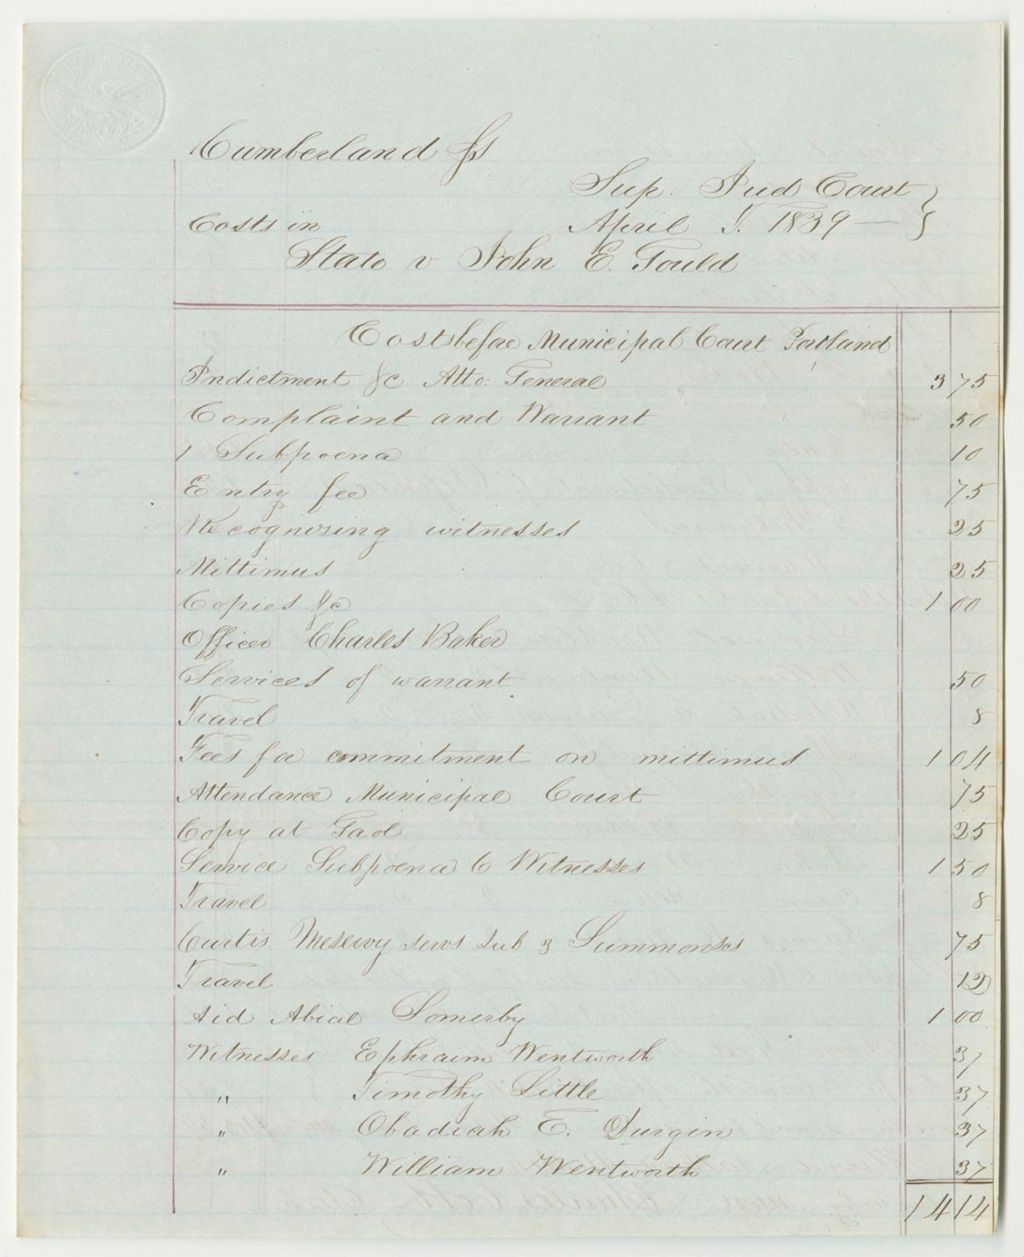 Cumberland ss
Sup. Jud Court
Costs in April T. 1839 —
State v John E. Gould
Costs before Municipal Court Portland
Indictment &c Atto: General 3 75
Complaint and Warrant 50
1 Subpoena 10
Entry fee 75
Recognising witnesses 25
Mittimus 25
Copies &c 1 00
Officer Charles Baker
Services of warrant 50
Travel 8
Fees for commitment on mittimus 1 04
Attendance Municipal Court 75
Copy at Gaol 25
Service Subpoena 6 Witnesses 1 50
Travel 8
Curtis Meservy servs sub 3 Summonses 75
Travel 12
Aid Abial Somerby 1 00
Witnesses Ephraim Wentworth 37
" Timothy Little 37
" Obadiah E. Durgin 37
" William Wentworth 37
14 14